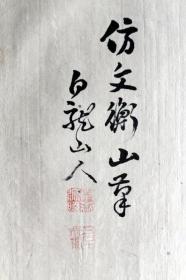 仿文衡山筆
白龍山人